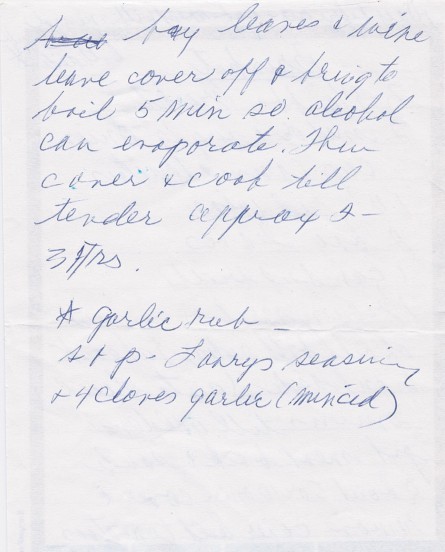 bay leaves & wine
leave cover off & bring to
boil 5 min so alcohol
can evaporate. Then
cover & cook till
tender approx 2-
3 Hrs.
* garlic rub -
s + p - Lawrys seasoning
+ 4 cloves garlic (minced)